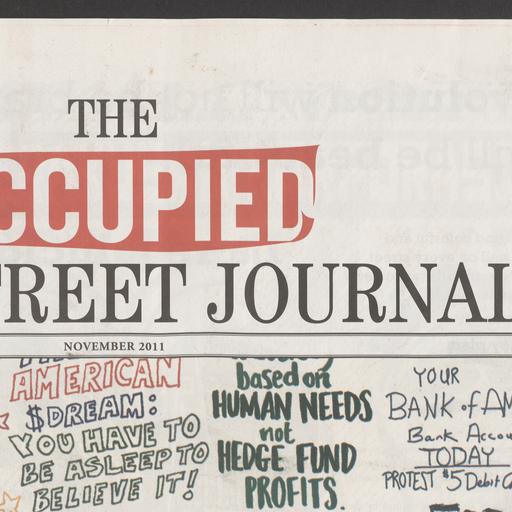 THE
CCUPIED
TREET JOURNAL
NOVEMBER 2011
AMERICAN
$DREAM:
YOU HAVE TO
BE ASLEEP TO
BELIEVE IT!
based on
HUMAN NEEDS
not
HEDGE FUND
PROFITS.
YOUR
BANK of AM
Bank Accou
TODAY
PROTEST $5 Debit C